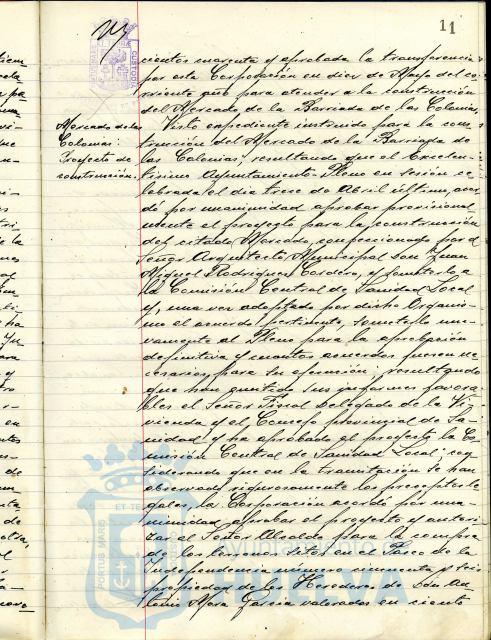 11
cientos cuarenta y aprobada la transferencia
por esta Corporación en diez de Mayo del co-
rriente año para atender a la construcción
del Mercado de la Barriada de las Colonias
Mercado de las
Colonias:
Proyecto de
construcción.
Visto expediente instruido para la cons-
trucción del Mercado de la Barriada de
las Colonias; resultando que el Excelen-
tísimo Ayuntamiento Pleno en sesión ce-
lebrada el día trece de Abril último, acor-
dó por unanimidad aprobar provisional-
mente el proyecto para la construcción
del citado Mercado, confeccionado por el
Señor Arquitecto Municipal Don Juan
Miguel Rodríguez Cordero, y someterlo a
la Comisión Central de Sanidad Local
y, una vez adoptado por dicho Organis-
mo el acuerdo pertinente, someterlo nue-
vamente al Pleno para la aprobación
definitiva y cuantos acuerdos fuesen ne-
cesarios para su ejecución; resultando
que han emitido sus informes favora-
bles el Señor Fiscal Delegado de la Vi-
vienda y el Consejo provincial de Sa-
nidad y ha aprobado el proyecto la Co-
misión Central de Sanidad Local; con-
siderando que en la tramitación se han
observado rigurosamente los preceptos le-
gales, la Corporación acordó por una-
nimidad aprobar el proyecto y autori-
zar al Señor Alcalde para la compra
de los terrenos sitos en el Paseo de la
Independencia número cincuenta y seis
propiedad de los Herederos de Don An-
tonio Mora García valorados en ciento
CUSTODIA
PORTUS MARIS
ET TE
Ayuntamiento de
HUELVA